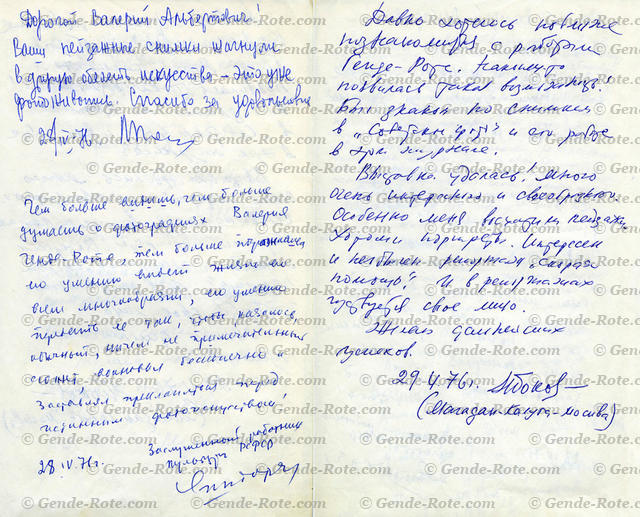 Дорогой Валерий Амбертович!
Ваши пейзажные снимки шагнули
в другую область искусства – это уже
фотоживопись. Спасибо за удовольствие
28/IV. 76
Чем больше видишь, чем больше
думаешь о фотографиях Валерия
Генде-Роте, тем больше поражаешься
его умению видеть жизнь во
всём многообразии, его умению
передать её так, чтобы казалось
обычный, ничем не примечательный
сюжет, взволновал бесконечно и
заставил преклоняться перед
истинным фотоискусством!
Заслуженный работник
культуры РСФСР
28.IV.76г
Давно хотелось поближе
познакомиться с работами
Генде-Роте. Наконец-то
появилась такая возможность!
Был знаком по снимкам
в "Советском фото" и его работе
в журнале.
Выставка удалась! Много
очень интересного и своеобразного
Особенно меня восхитили пейзажи.
Хороши портреты. Интересен
и необычен репортаж "Скорая
помощь". И в репортажах
чувствуется своё лицо.
Желаю дальнейших
успехов.
29.V.76г.
(Магадан-Калуга-Москва)
© Gende-Rote.com